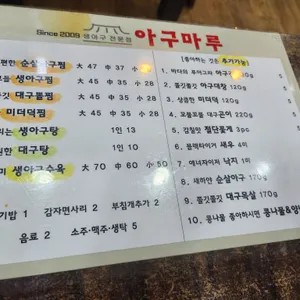 Since 2009 생아구 전문점 아구마루
편한 순살아구찜 大 47 中 37 小
생아구찜 大 45 中 35 小 28
대구뽈찜 大 45 中 35 小 28
미더덕찜 大 45 中 35 小 28
생아구탕 1인 13
대구탕 1인 10
생아구수육 大 70 中 60 小 50
기밥 1 감자면사리 2 부침개추가 2
음료 2 소주·맥주·생탁 5
[좋아하는 것은 추가가능]
1. 바다의 푸아그라 아구
2. 쫄깃쫄깃 아구대창
3. 상큼한 미더덕
4. 포들포들 대구곤이 220g
5. 감칠맛 절단꽃게 3pc
6. 블랙타이거 새우 4미
7. 에너자이저 낙지 1미
8. 새하얀 순살아구 170g
9. 쫄깃쫄깃 대구목살 170g
10. 콩나물 좋아하시면 콩나물&양